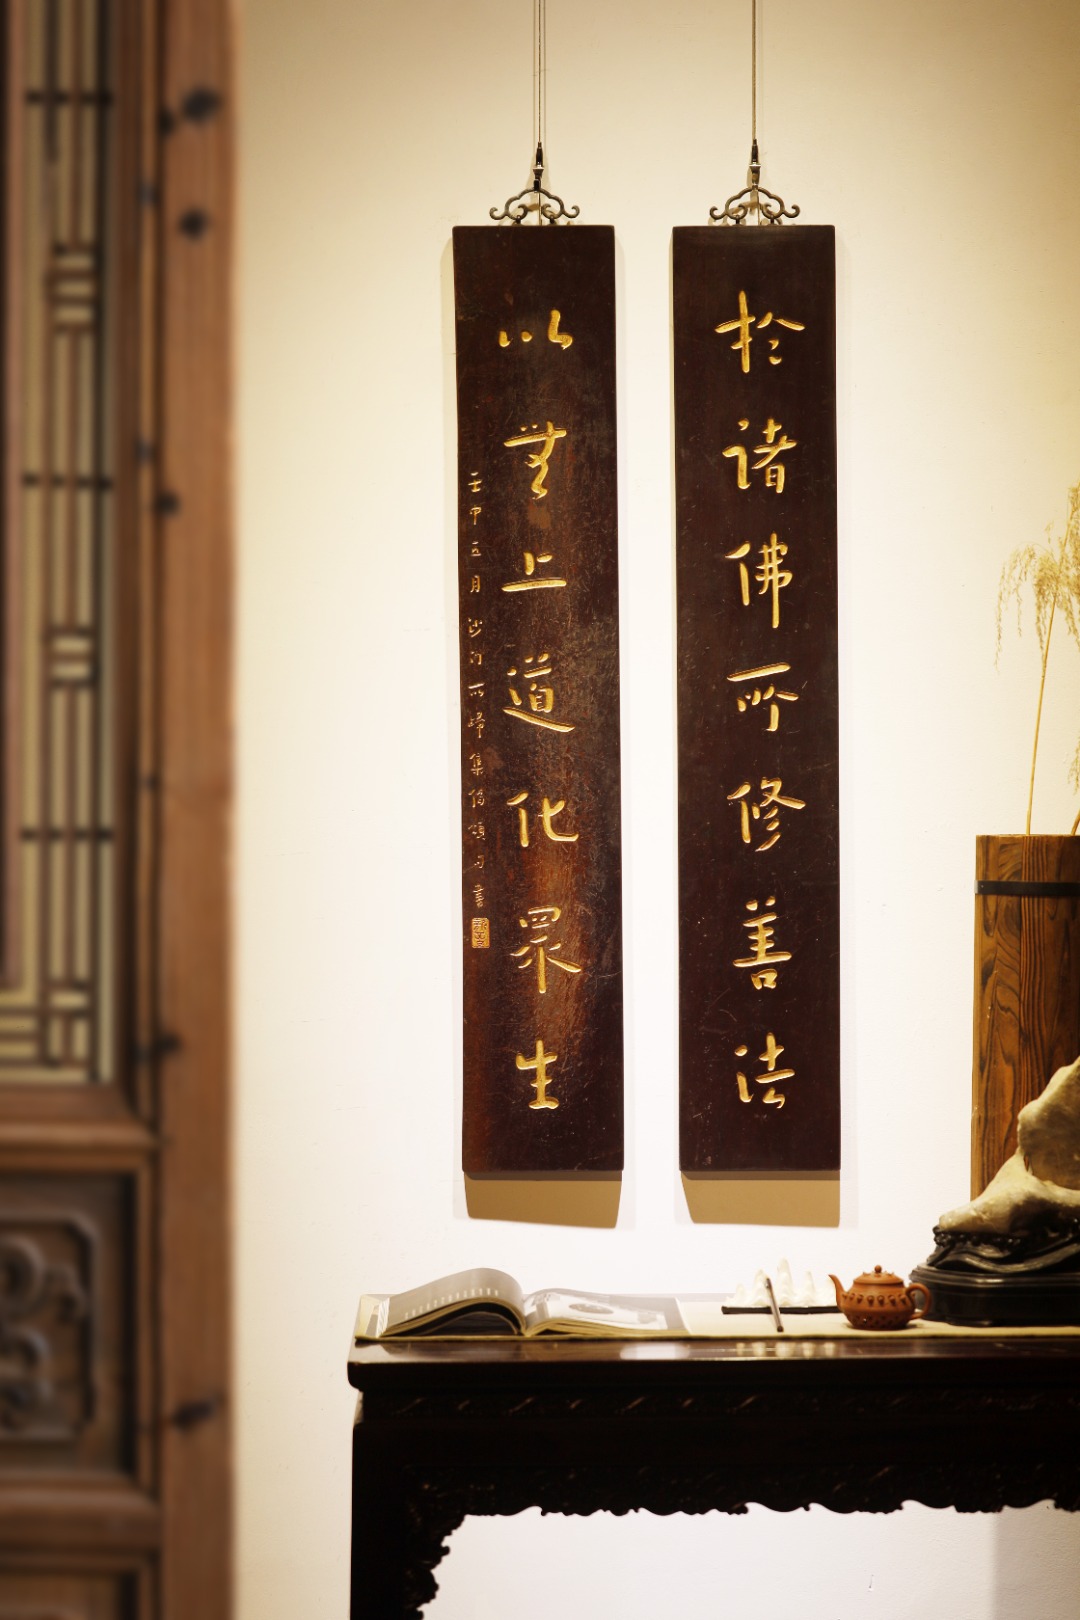 於諸佛所修善法
以無上道化眾生
壬申五月沙門所歸集偈頌句書